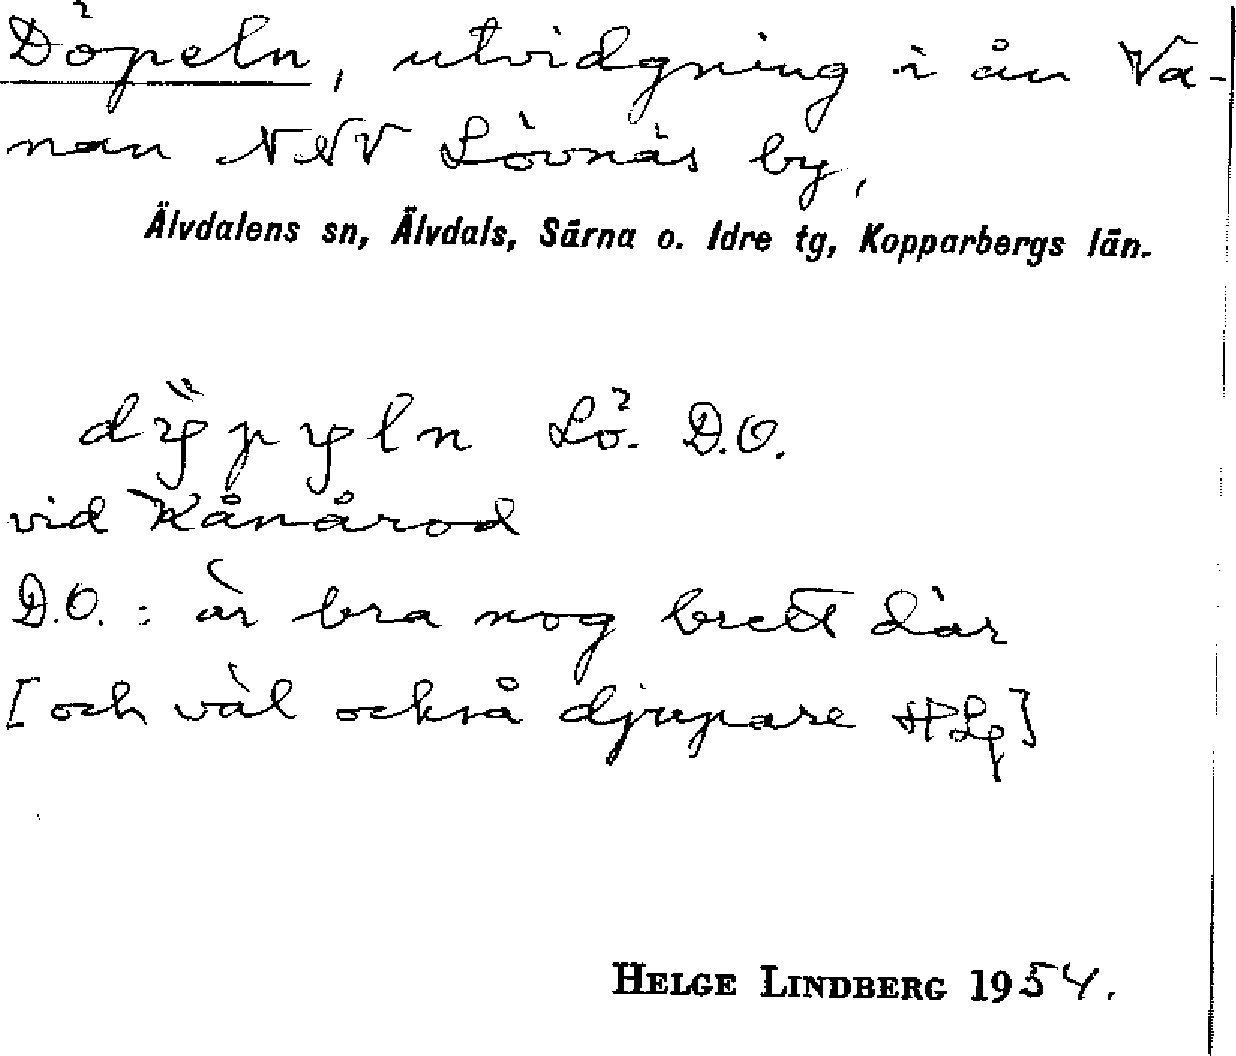 Döpeln, utvidgning i ån Va-
nan NNV Lövnäs by,
Älvdalens sn, Älvdals, Särna o. Idre tg, Kopparbergs län.
dÿpyln Lö. D.O.
vid Kånårod
D.O. : är bra nog brett där
[och väl också djupare HLg]
HELGE LINDBERG 1954.